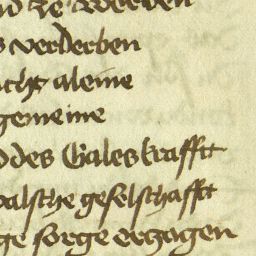 nd ze werden
s verderben
acht aleine
gemeine
des Gales krafftt
valsche geselschafft
ge sorge erzagen